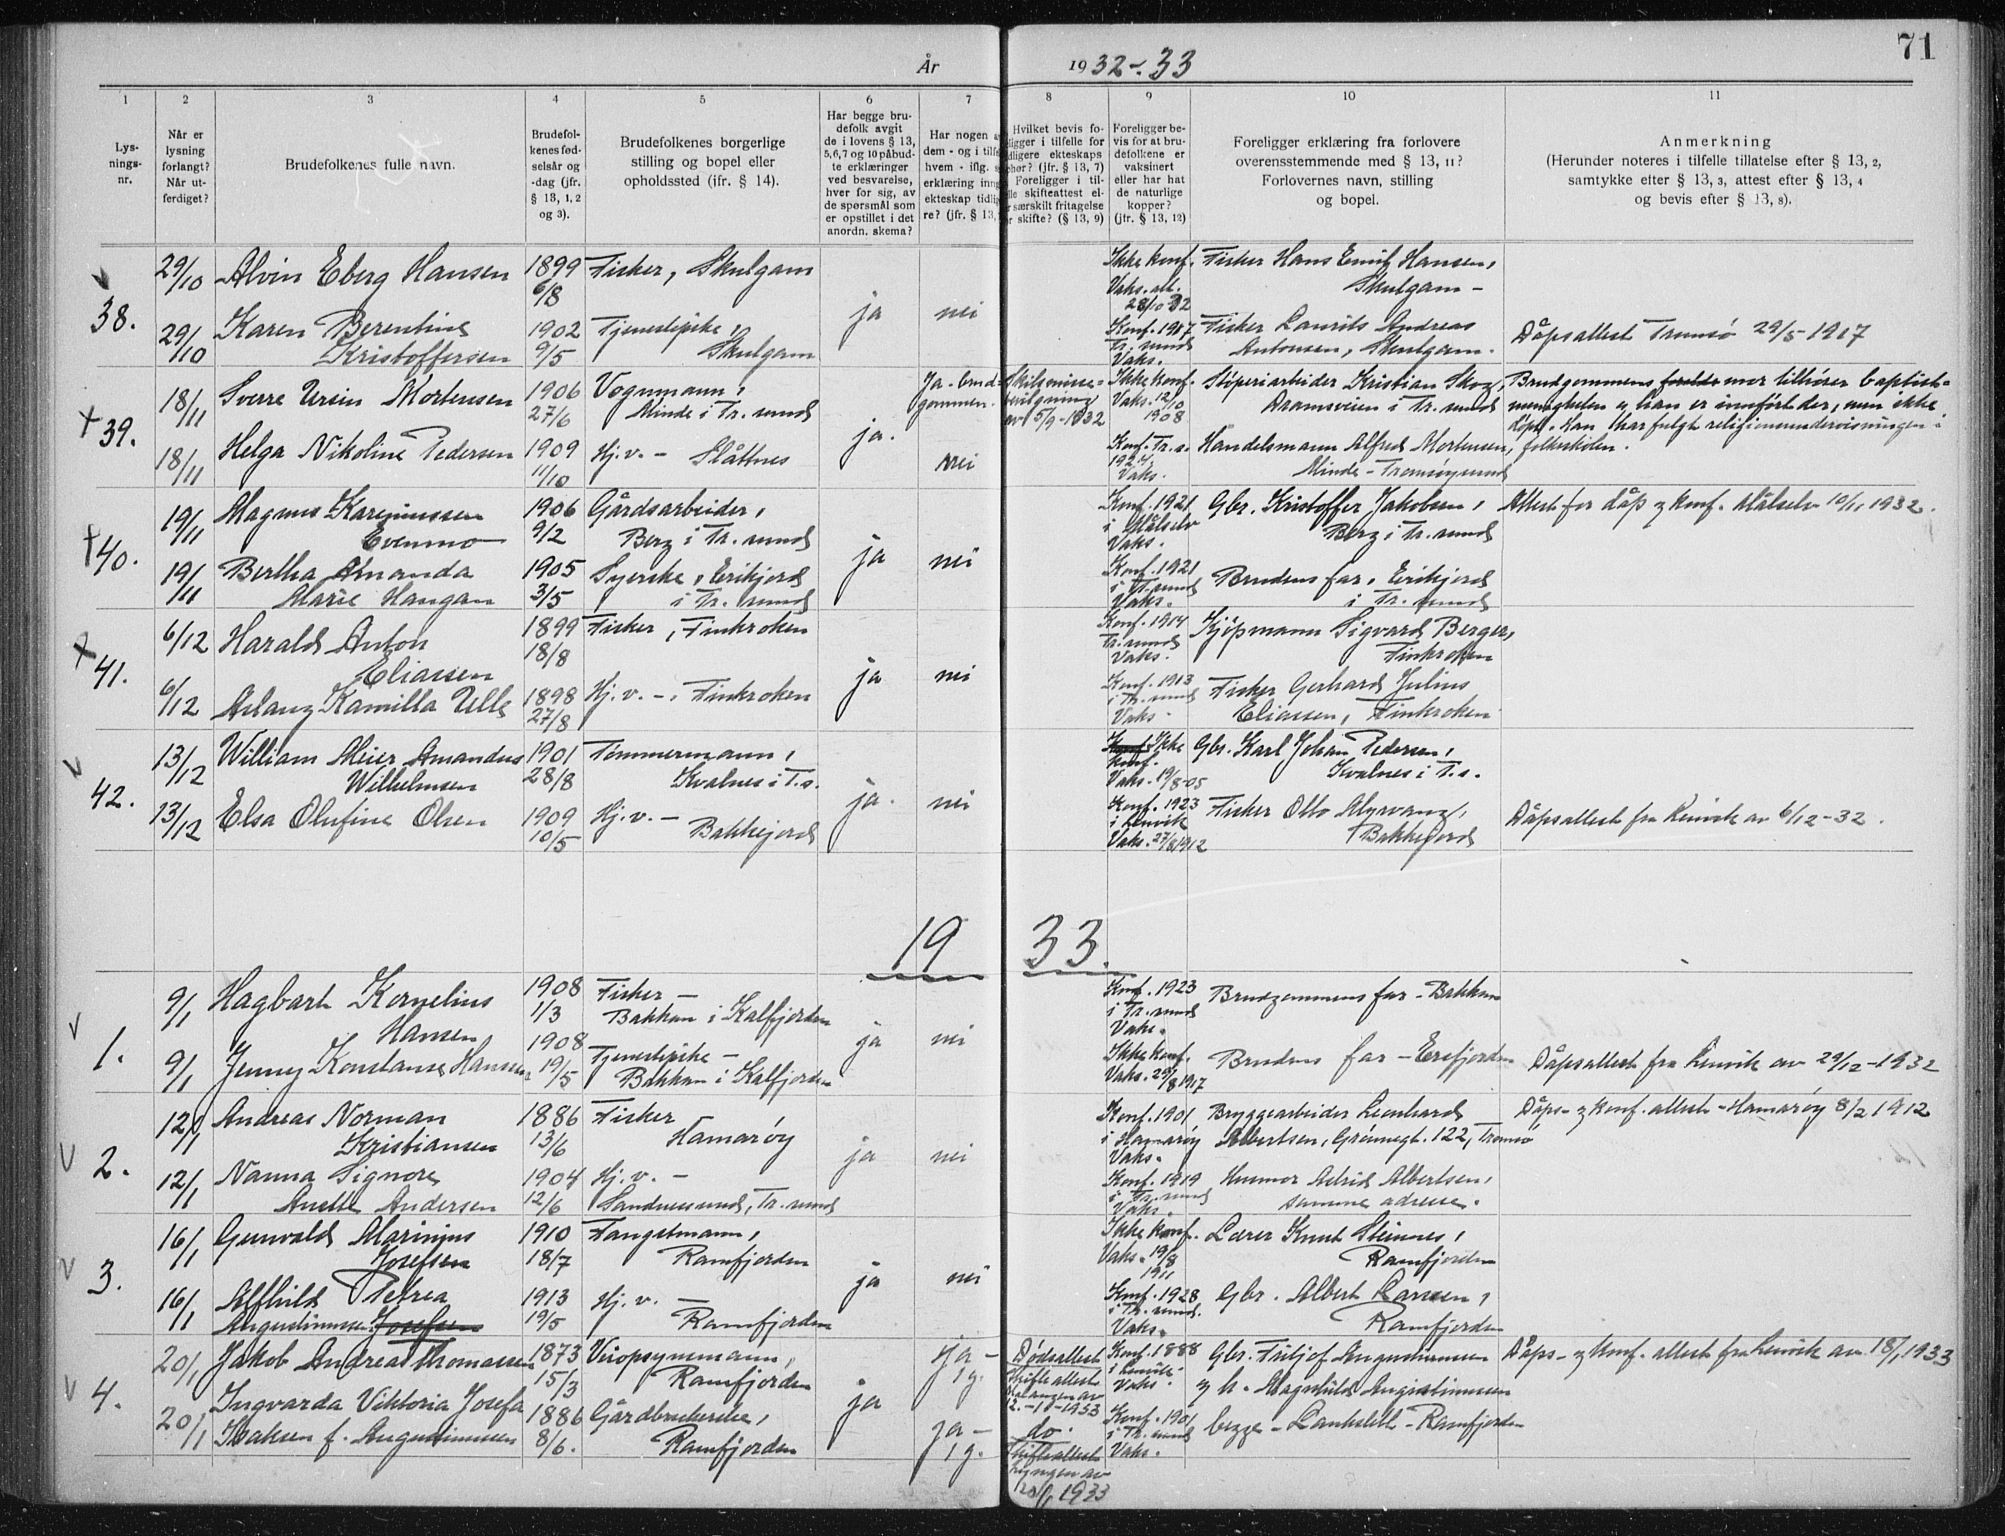 71
År 1932-33
1 2 3 4 5 6 7 8 9 10 11
Lys-
nings-
nr.
Når er
lysning
forlangt?
Når ut-
ferdiget?
Brudefolkenes fulle navn.
Brudefol-
kenes fød-
selsår og
-dag (jfr.
§ 13, 1, 2
og 3).
Brudefolkenes borgerlige
stilling og bopel eller
opholdssted (jfr. § 14).
Har begge bru-
defolk avgit
de i lovens § 13,
5, 6, 7 og 10 påbud-
te erklæringer
ved besvarelse,
hver for sig, av
de spørsmål som
er opstillet i det
anordn. skema?
Har nogen a
dem - og i tilf
hvem - iflg. s
erklæring inng
ekteskap tidli
re? (jfr. § 13,
Hvilket bevis fo-
ligger i tilfelle for
dligere ekteskaps
phør? (jfr. § 13, 7)
Foreligger i til-
lle skifteattest el-
r særskilt fritagelse
r skifte? (§ 13, 9)
Foreligger be-
vis for at bru-
defolkene er
vaksinert
eller har hat
de naturlige
kopper?
(jfr. § 13, 12)
Foreligger erklæring fra forlovere
overensstemmende med § 13, 11?
Forlovernes navn, stilling
og bopel.
Anmerkning
(Herunder noteres i tilfelle tillatelse efter § 13, 2,
samtykke efter § 13, 3, attest efter § 13, 4
og bevis efter § 13, 8).
38.
29/10 Alvin Eberg Hansen 1899 6/8 Fisker, Skulgam
ja nei
Ikke konf.
Vaks. att.
28/10 32
Fisker Hans Emil Hansen,
Skulgam -
29/10 Karen Berentine
Kristoffersen
1902 9/5
Tjenestepike,
Skulgam
Konf. 1917
Tr. sund
Vaks.
Fisker Laurits Andreas
Antonsen, Skulgam.
Dåpsattest Tromsø 29/5 1917
39.
18/11 Sverre Ursin Mortensen 1906 27/6
Vognmann,
Minde i Tr. sund
ja.
Ja - brud-
gommen.
Skilsmisse-
bevilgning
av 5/9-1932
Ikke konf.
Vaks. 12/10
1908
Støperiarbeider Kristian Skog,
Dramsveien i Tr. sund
Brudgommens mor tilhører baptist-
menigheten og han er innført der, men ikke
døpt. Han har fulgt religionsundervisningen i
folkeskolen.
18/11 Helga Nikoline Pedersen 1909 11/10
Hj.v. - Slåttnes
nei
Konf. Tr. s.
1924
Vaks.
Handelsmann Alfred Mortensen,
Minde - Tromsøysund
40.
19/11 Magnus Kareniussen
Evenmo
1906 9/2
Gårdsarbeider,
Berg i Tr. sund
ja nei
Konf. 1921
i Målselv
Vaks.
Gbr. Kristoffer Jakobsen,
Berg i Tr. sund
Attest for dåp og konf. Målselv 10/11 1932.
19/11 Bertha Amanda
Marie Haugan
1905 3/5
Syerske, Erikjord
i Tr. sund
Konf. 1921
i Tr. sund
Vaks.
Brudens far, Erikjord
i Tr. sund
41.
6/12 Harald Anton
Eliassen
1899 18/8
Fisker, Finkroken
ja nei
Konf. 1914
Tr. sund
Vaks.
Kjøpmann Sigvard Berger,
Finkroken
6/12 Aslaug Kamilla Ulls 1898 27/8
Hj.v. -. Finkroken
Konf. 1913
i Tr. sund
Vaks.
Fisker Gerhard Julius
Eliassen, Finkroken
42.
13/12 William Meier Amandus
Wilhelmsen
1901 28/8
Tømmermann,
Kvalnes i T.s.
ja. nei
Konf. Ikke
konf.
Vaks. 19/8-05
Gbr. Karl Johan Pedersen,
Kvalnes i T.s.
13/12 Elsa Olufine Olsen 1909 10/5
Hj.v. -
Bakkejord
Konf. 1923
i Lenvik
Vaks. 27/8 1912
Fisker Otto Myrvang,
Bakkejord
Dåpsattest fra Lenvik av 6/12-32.
1933.
1.
9/1 Hagbart Kornelius
Hansen
1908 1/3
Fisker -
Bakkan i Kalfjorden
ja nei
Konf. 1923
i Tr. sund
Vaks.
Brudgommens far - Bakkan
9/1 Jenny Konstanse Hansen
1908 19/5
Tjenestepike -
Bakkan i Kalfjorden
Ikke konf.
Vaks. 29/8 1917
Brudens far - Ersfjorden
Dåpsattest fra Lenvik av 29/12-1932
2.
12/1 Andreas Norman
Kristiansen
1886 13/6
Fisker
Hamarøy
ja nei
Konf. 1901
i Hamarøy
Vaks.
Bryggearbeider Leonhard
Albertsen, Grønnegt. 122, Tromsø
Dåps- og konf. attest - Hamarøy 8/2 1912
12/1 Nanna Signore
Anette Andersen
1904 12/6
Hj.v. -
Sandnessund, Tr. sund
Konf. 1919
i Tr. sund
Vaks.
Husmor Astrid Albertsen,
samme adresse.
3.
16/1 Gunvald Marinius
Josefsen
1910 18/7
Fangstmann,
Ramfjorden
ja nei
Ikke konf.
Vaks. 19/8
1911
Lærer Knut Steinnes,
Ramfjorden
16/1 Alfhild Petrea
Augustinussen Josefsen
1913 19/5
Hj.v. -
Ramfjorden
Konf. 1928
i Tr. sund.
Vaks.
Gbr. Albert Larssen,
Ramfjorden
4.
20/1 Jakob Andreas Thomassen 1873 15/3
Veiopsynsmann,
Ramfjorden
ja
ja -
1 g.
Dødsattest
Skifteattest
Malangen av
12.-10-1933
Konf. 1888
i Lenvik
Vaks.
Gbr. Fritjof Augustinussen
og h. Magnhild Augustinussen
Dåps- og konf. attest fra Lenvik av 18/1 1933
20/1 Ingvarda Viktoria Josefa
Isaksen f. Augustinussen
1886 8/6.
Gårdbrukerske,
Ramfjorden
ja -
1 g.
do.
Skifteattest
Lyngen av
20/1 1933
Konf. 1901
i Tr. sund
Vaks.
begge - Lankslett - Ramfjorden